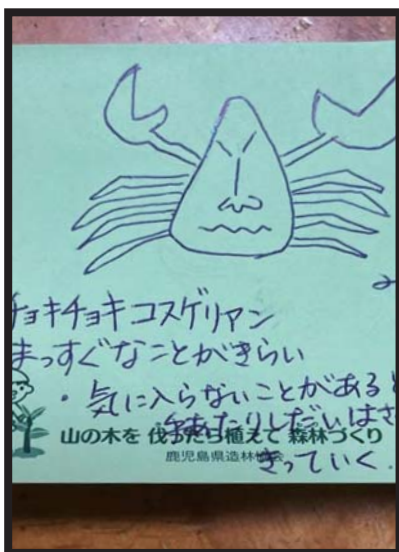 チョキチョキコスゲリアン
まっすぐなことがきらい
・気に入らないことがあると
あたりしだいはさ
きっていく
山の木を 伐ったら植えて 森林づくり
鹿児島県造林協会